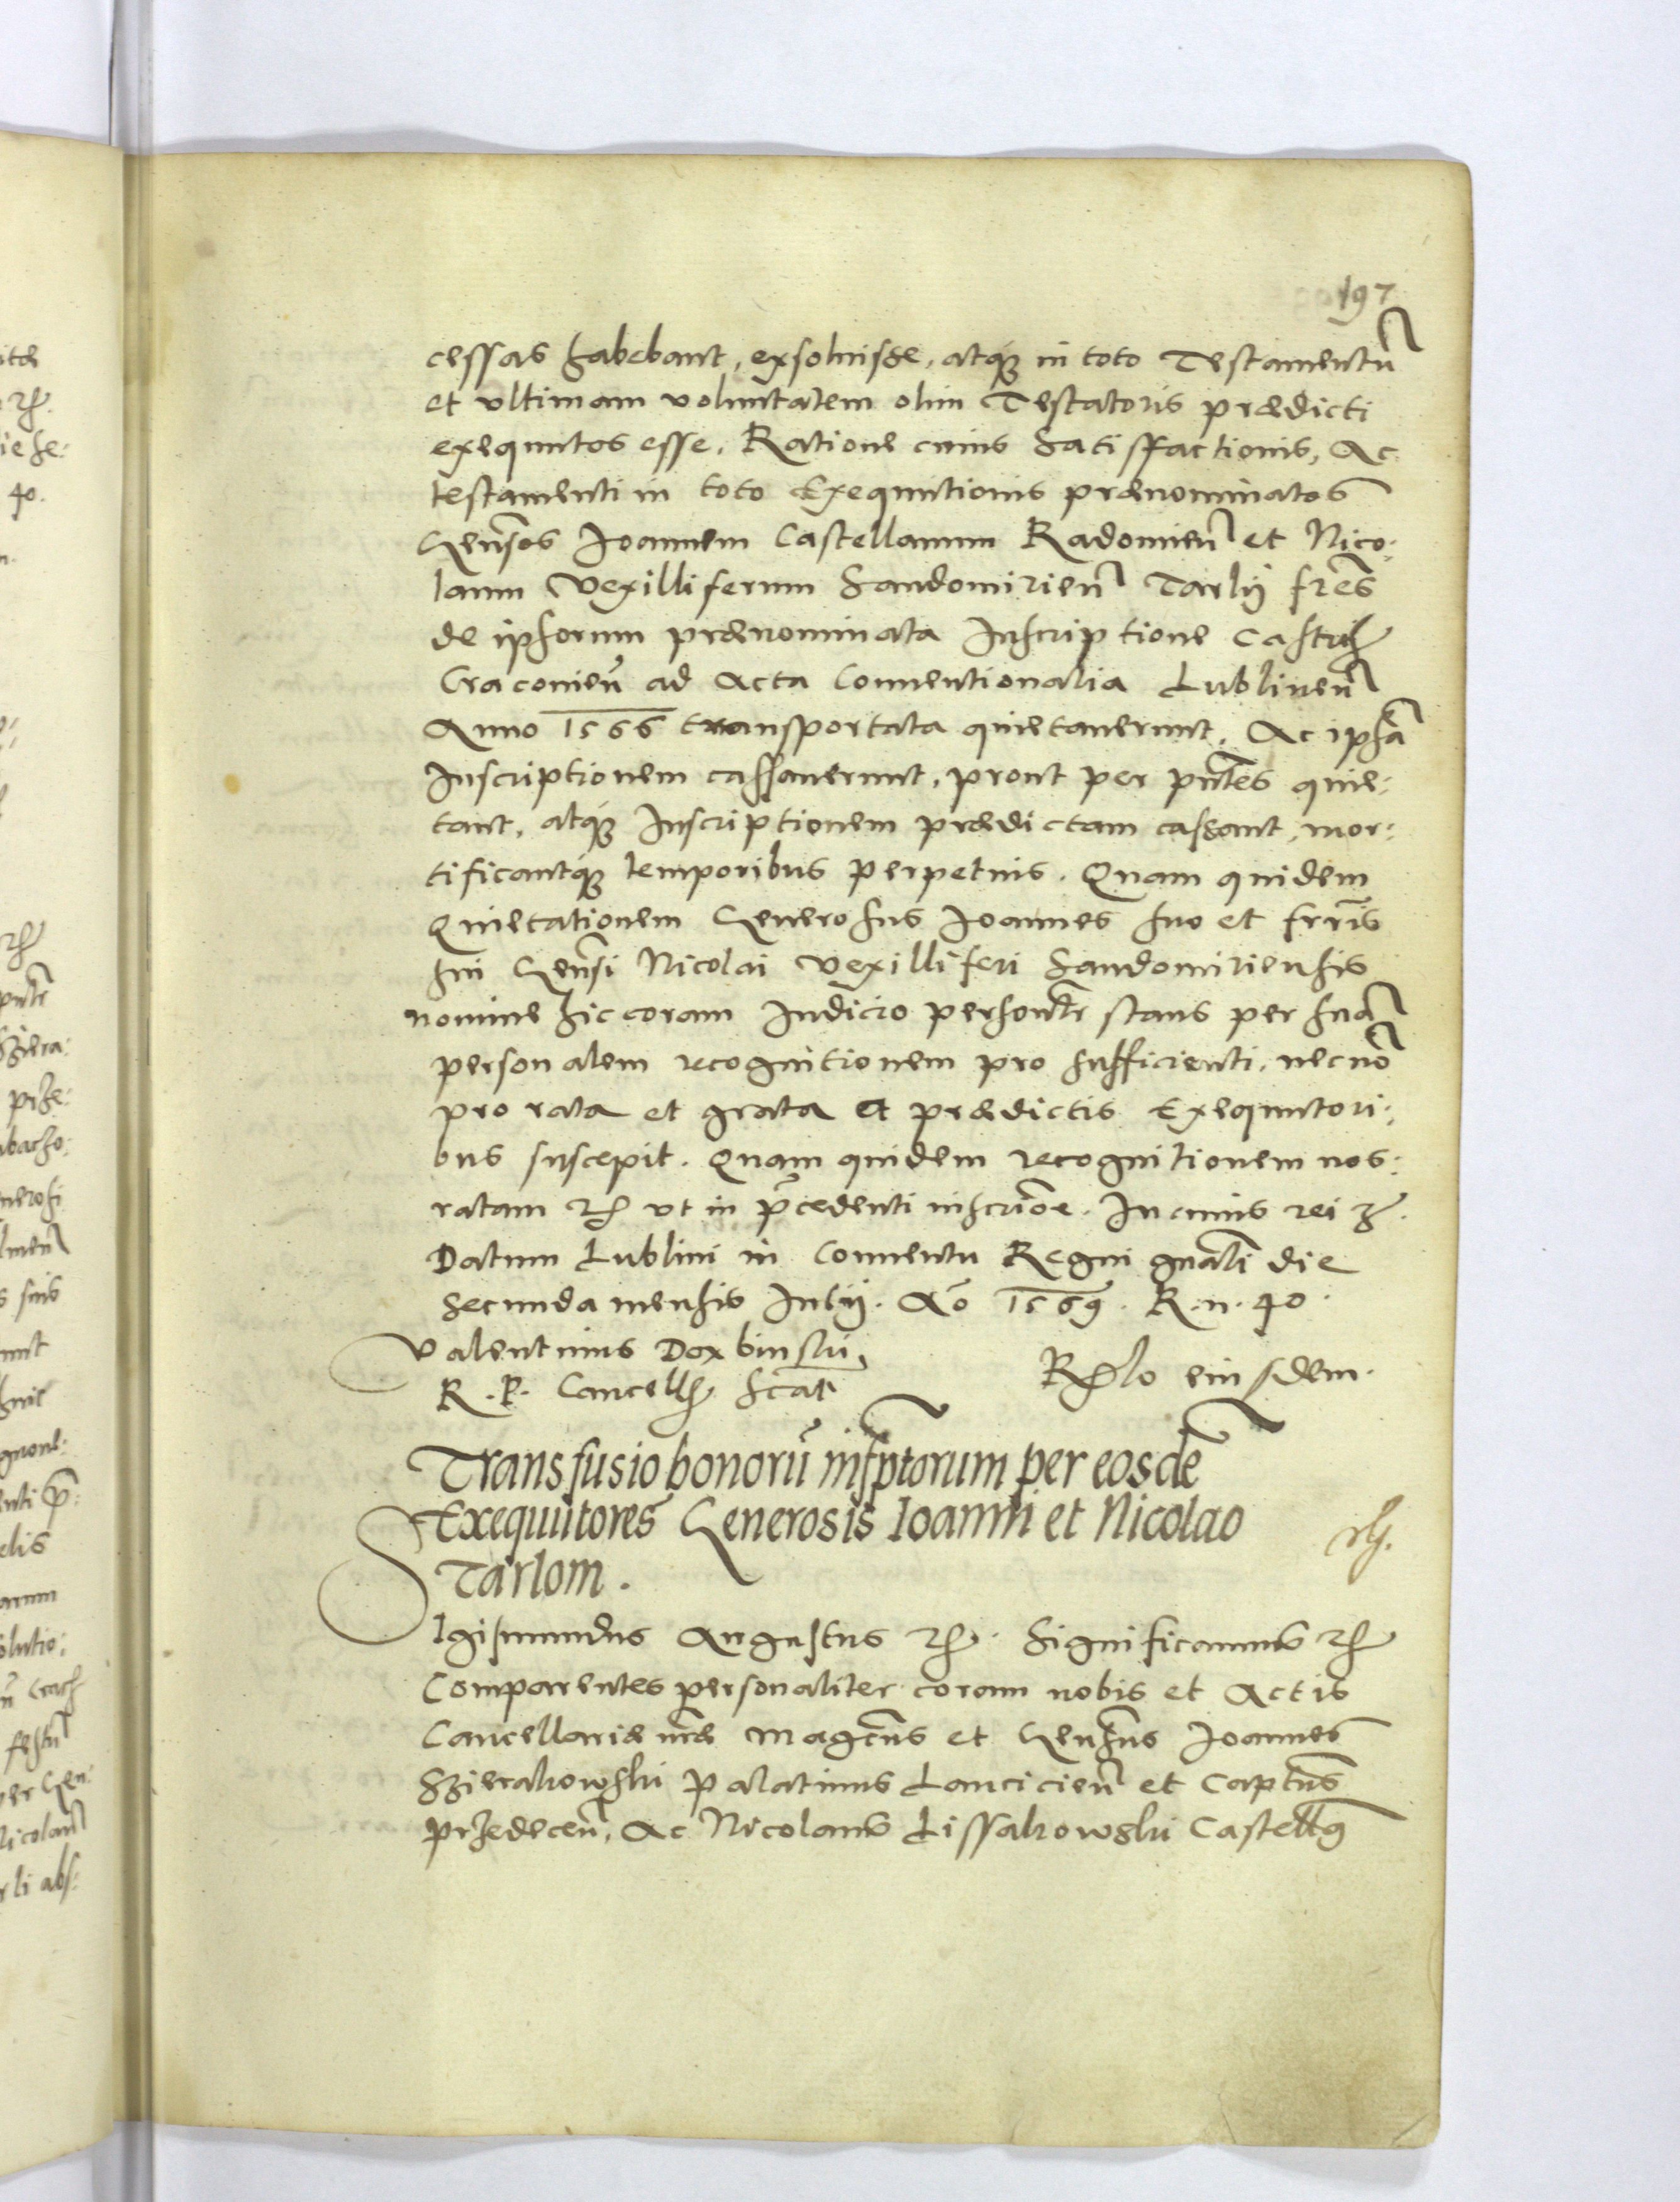 197
cessas habebant, exsoluisse, atq́ꝫ in toto Testamentū
et vltimam voluntatem olim Testatoris prædicti
exequutos esse. Ratione cuius Satisffactionis, Ac
testamenti in toto Exequutionis prænominatos
Gen̄sos Joannem Castellanum Radomien̄ et Nico:
laum Vexilliferum Sandomirien̄ Tarlij fr̄es
de ipsorum prænominata Inscriptione castrꝫ
Cracouien̄ ad Acta Conuentionalia Lublinen̄
Anno 1566 transportata quietauerunt. Ac ipsā
Inscriptionem cassauerunt, prout per pn̄tes quie:
tant, atq́ꝫ Inscriptionem prædictam cassant, mor:
tificantq́ꝫ temporibus perpetuis. Quam quidem
Quietationem Generosus Joannes suo et fr̄ris
sui Gen̄si Nicolai Vexilliferi Sandomiriensis
nomine hic coram Iudicio personltr stans per suā
personalem recognitionem pro sufficienti, necnō
pro rata et grata A prædictis Exequutori:
bus suscepit. Quam quidem recognitionem nos:
ratam ꝛꝫ vt in p̄cedenti inscrio̅e. In cuius rei ꝛꝫ.
Datum Lublini in Conuentu Regni gn̄ali die
Secunda mensis Iulij. Aō 1569. R. n. 40.
Valentinus Dᴇxbinski,
R. P. Cancellꝫ scrāt
Rꝫlo eiusdem.
Transfusio bonorū insp̄torum per eosdē
Exequutores Generosis Ioanni et Nicolao
Tarlom.
Sigismundus Augustus ꝛꝫ. Significamus ꝛꝫ
Comparentes personaliter coram nobis et Actis
Cancellariæ nr̄æ Magcūs et Gen̄sus Joannes
Szierakowski Palatinus Lancicien̄ et Captūs
Przedecen̄, Ac Nicolaus Lissakowski Castellꝫ